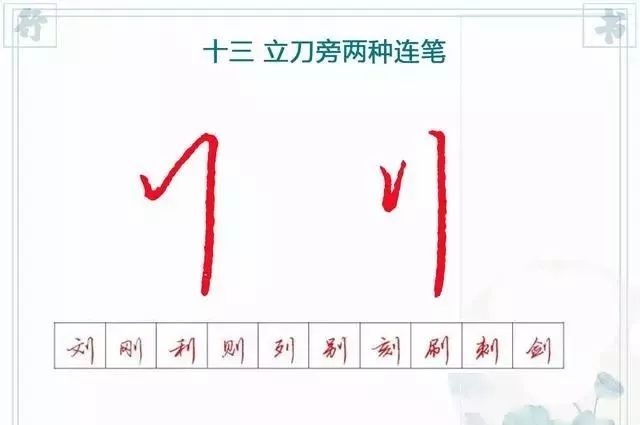 行 书
十三 立刀旁两种连笔
刂 刂
刘 刚 利 则 列 别 刻 刷 刺 剑